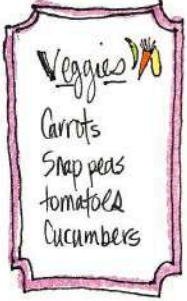 Veggies
Carrots
Snap peas
tomatoes
Cucumbers